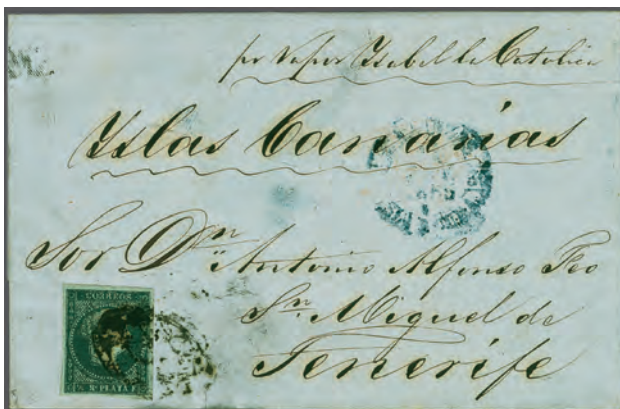 por Vapor Ysabel la Catolica
Yslas Canarias
Sor Dn Antonio Alfonso Feo
Sn. Miguel de
Tenerife
CORREOS
Rl PLATA F.